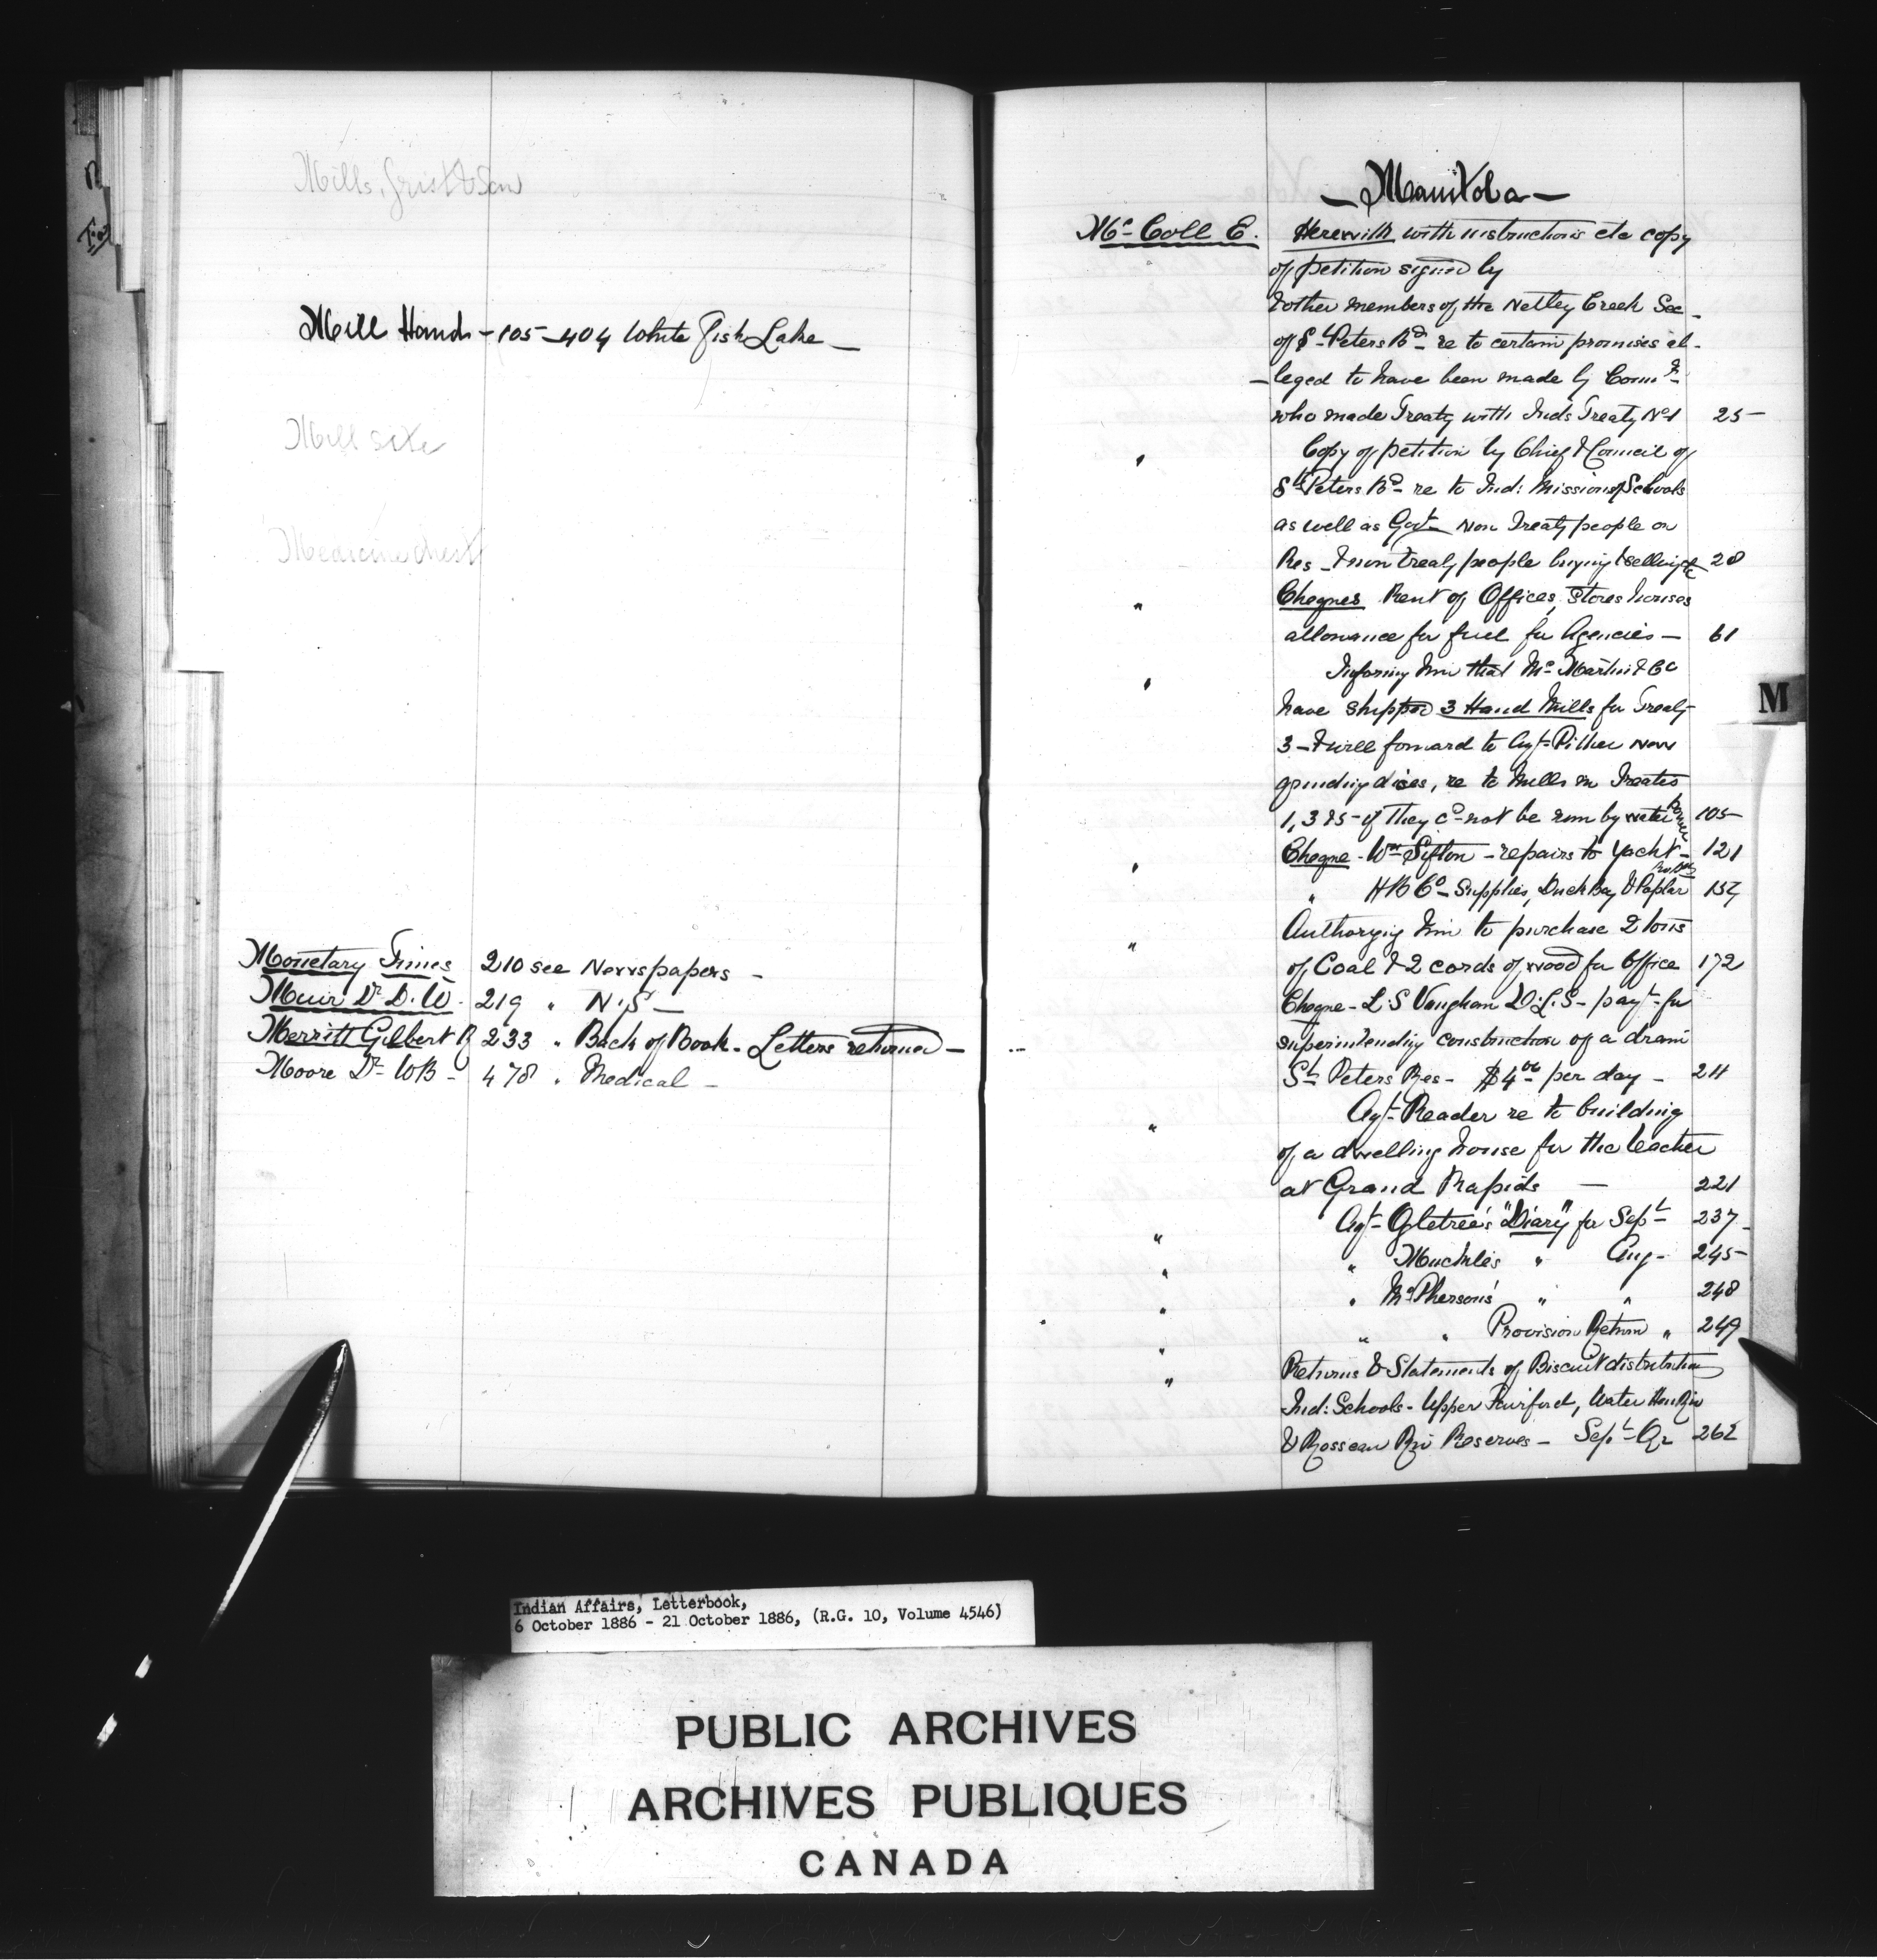 Mills, Grist & Saw
Mill Hand - 105 - 404 White Fish Lake -
Mill site
Medicine Chest
Monetary Times 210 see Newspapers -
Muir Dr D. W. 219 " N.S -
Merritt Gilbert 233 " Back of Book - Letters returned -
Moore Dr W B - 478 " Medical -
- Manitoba -
Mc Coll E. Herewith with instructions etc copy
of petition signed by
& other members of the Netley Creek Sec -
of St Peters Bd - re to certain promises al -
- leged to have been made by Comrs
who made Treaty with Inds Treaty No 1 25 -
" Copy of petition by Chief & Council of
St Peters Bd - re to Ind: Missions Schools
as well as Govt - Non Treaty people on
Res - & non treaty people buying & selling &c 28
" Cheques Rent of Offices, Stores houses
allowance for fuel for Agencies - 61
" Informing him that Mc Martin & Co
have shipped 3 Hand Mills for Treaty
3 - & will forward to Agt - Pither new
grinding dices, re to Mills in Treaties
1, 3 & 5 - if they cd - not be run by water power 105 -
" Cheque - Wm Sifton - repairs to Yacht - 121
" H B Co - Supplies, Duck Bay & Poplar 157
" Authorzing him to purchase 2 tons
of Coal & 2 cords of wood for Office 172
Cheque - L. S Vaughan D. L. S - payt - for
superintending construction of a drain
St Peters Res - $4 00 per day - 211
" Agt - Reader re to building
of a dwelling house for the teacher
at Grand Rapids - 221
" Agt - Ogletree's "Diary" for Sept - 237 -
" " Muckle's " Aug - 245 -
" " McPherson's " " 248
" " " Provision Return " 249
" Returns & Statements of Biscuit distribution
Ind: Schools - Upper Fairford, Water Hen Riv
& Rosseau Riv Reserves - Sept - Qr 262
M
Indian Affairs, Letterbook,
6 October 1886 - 21 October 1886, (R.G. 10, Volume 4546)
PUBLIC ARCHIVES
ARCHIVES PUBLIQUES
CANADA